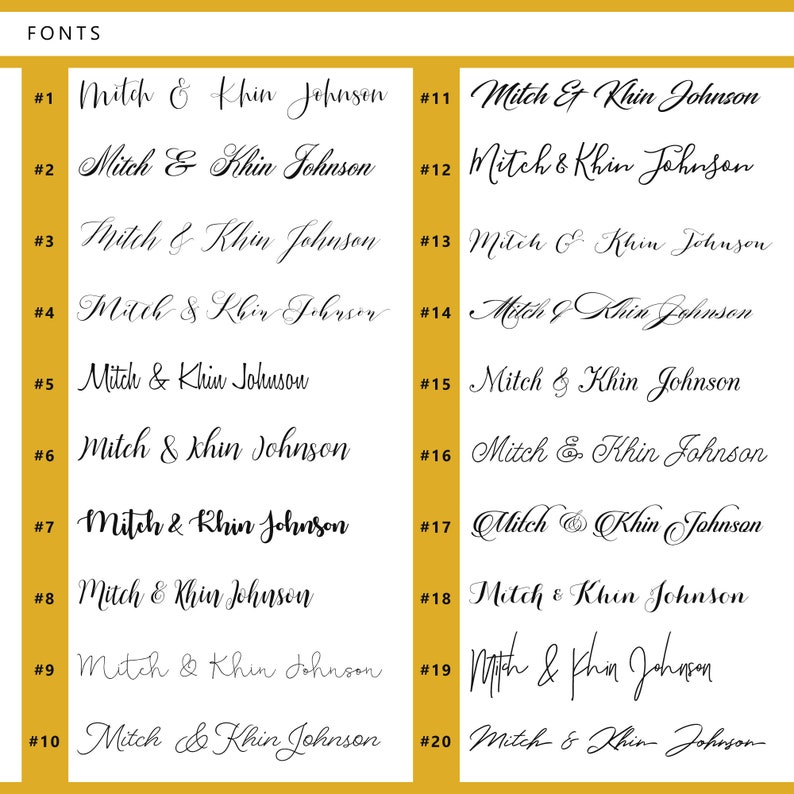 FONTS
#1 Mitch & Khin Johnson
#2 Mitch & Khin Johnson
#3 Mitch & Khin Johnson
#4 Mitch & Khin Johnson
#5 Mitch & Khin Johnson
#6 Mitch & Khin Johnson
#7 Mitch & Khin Johnson
#8 Mitch & Khin Johnson
#9 Mitch & Khin Johnson
#10 Mitch & Khin Johnson
#11 Mitch & Khin Johnson
#12 Mitch & Khin Johnson
#13 Mitch & Khin Johnson
#14 Mitch & Khin Johnson
#15 Mitch & Khin Johnson
#16 Mitch & Khin Johnson
#17 Mitch & Khin Johnson
#18 Mitch & Khin Johnson
#19 Mitch & Khin Johnson
#20 Mitch & Khin Johnson